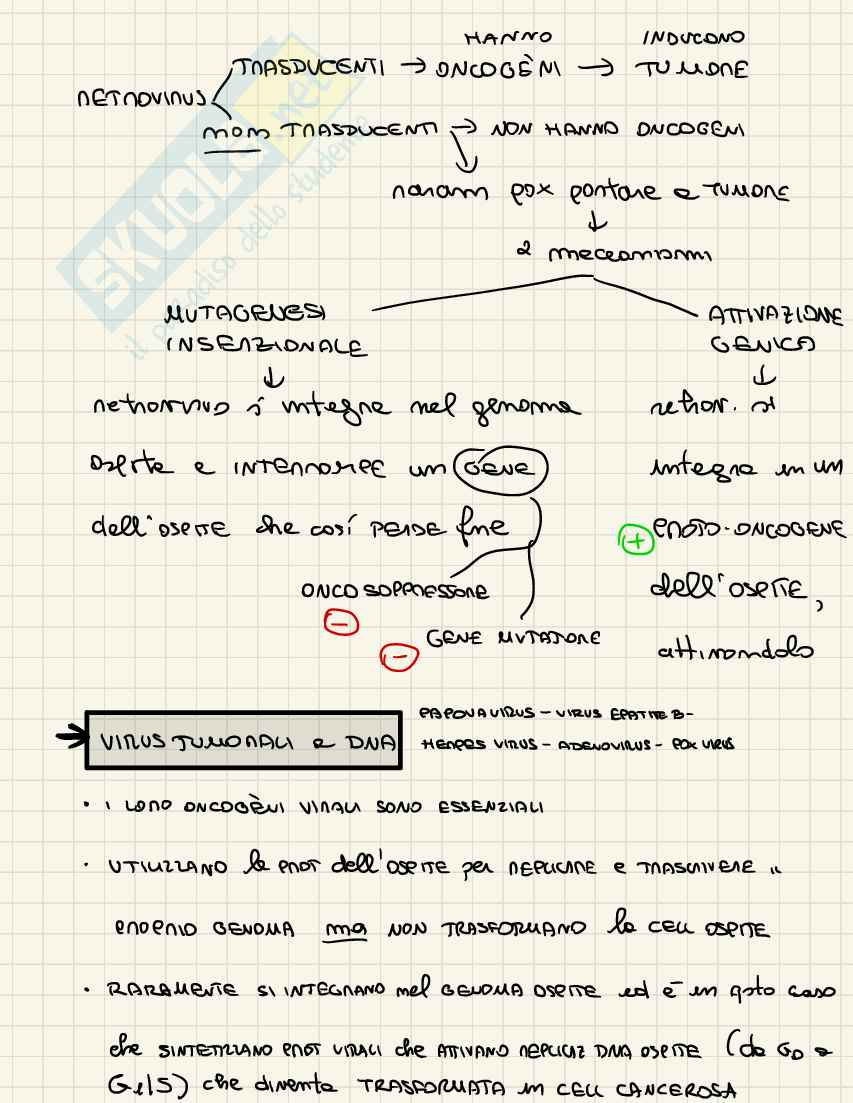 HANNO INDUCONO
RETROVIRUS TRASDUCENTI → ONCOGÈNI → TUMORE
non TRASDUCENTI → NON HANNO ONCOGENI
raram pox portare a TUMORE
2 meccanismi
MUTAGENESI ATTIVAZIONE
INSERZIONALE GENICA
retrovirus si integra nel genoma retrov. si
ospite e INTERROMPE un GENE integra in un
dell'OSPITE che così PERDE fne + PROTO-ONCOGENE
ONCOSOPPRESSORE dell'OSPITE,
-
- GENE MUTATORE attivandolo
→ VIRUS TUMORALI a DNA PAPOVAVIRUS - VIRUS EPATITE B -
HERPES VIRUS - ADENOVIRUS - POX VIRUS
• I LORO ONCOGÈNI VIRALI SONO ESSENZIALI
• UTILIZZANO le PROT dell'OSPITE per REPLICARE e TRASCRIVERE IL
PROPRIO GENOMA ma NON TRASFORMANO la CELL OSPITE
• RARAMENTE SI INTEGRANO nel GENOMA OSPITE ed è in qsto caso
che SINTETIZZANO PROT VIRALI che ATTIVANO REPLICAZ DNA OSPITE (da G0 a
G1/S) che diventa TRASFORMATA in CELL CANCEROSA
SKUOLA.net
il paradiso dello studente